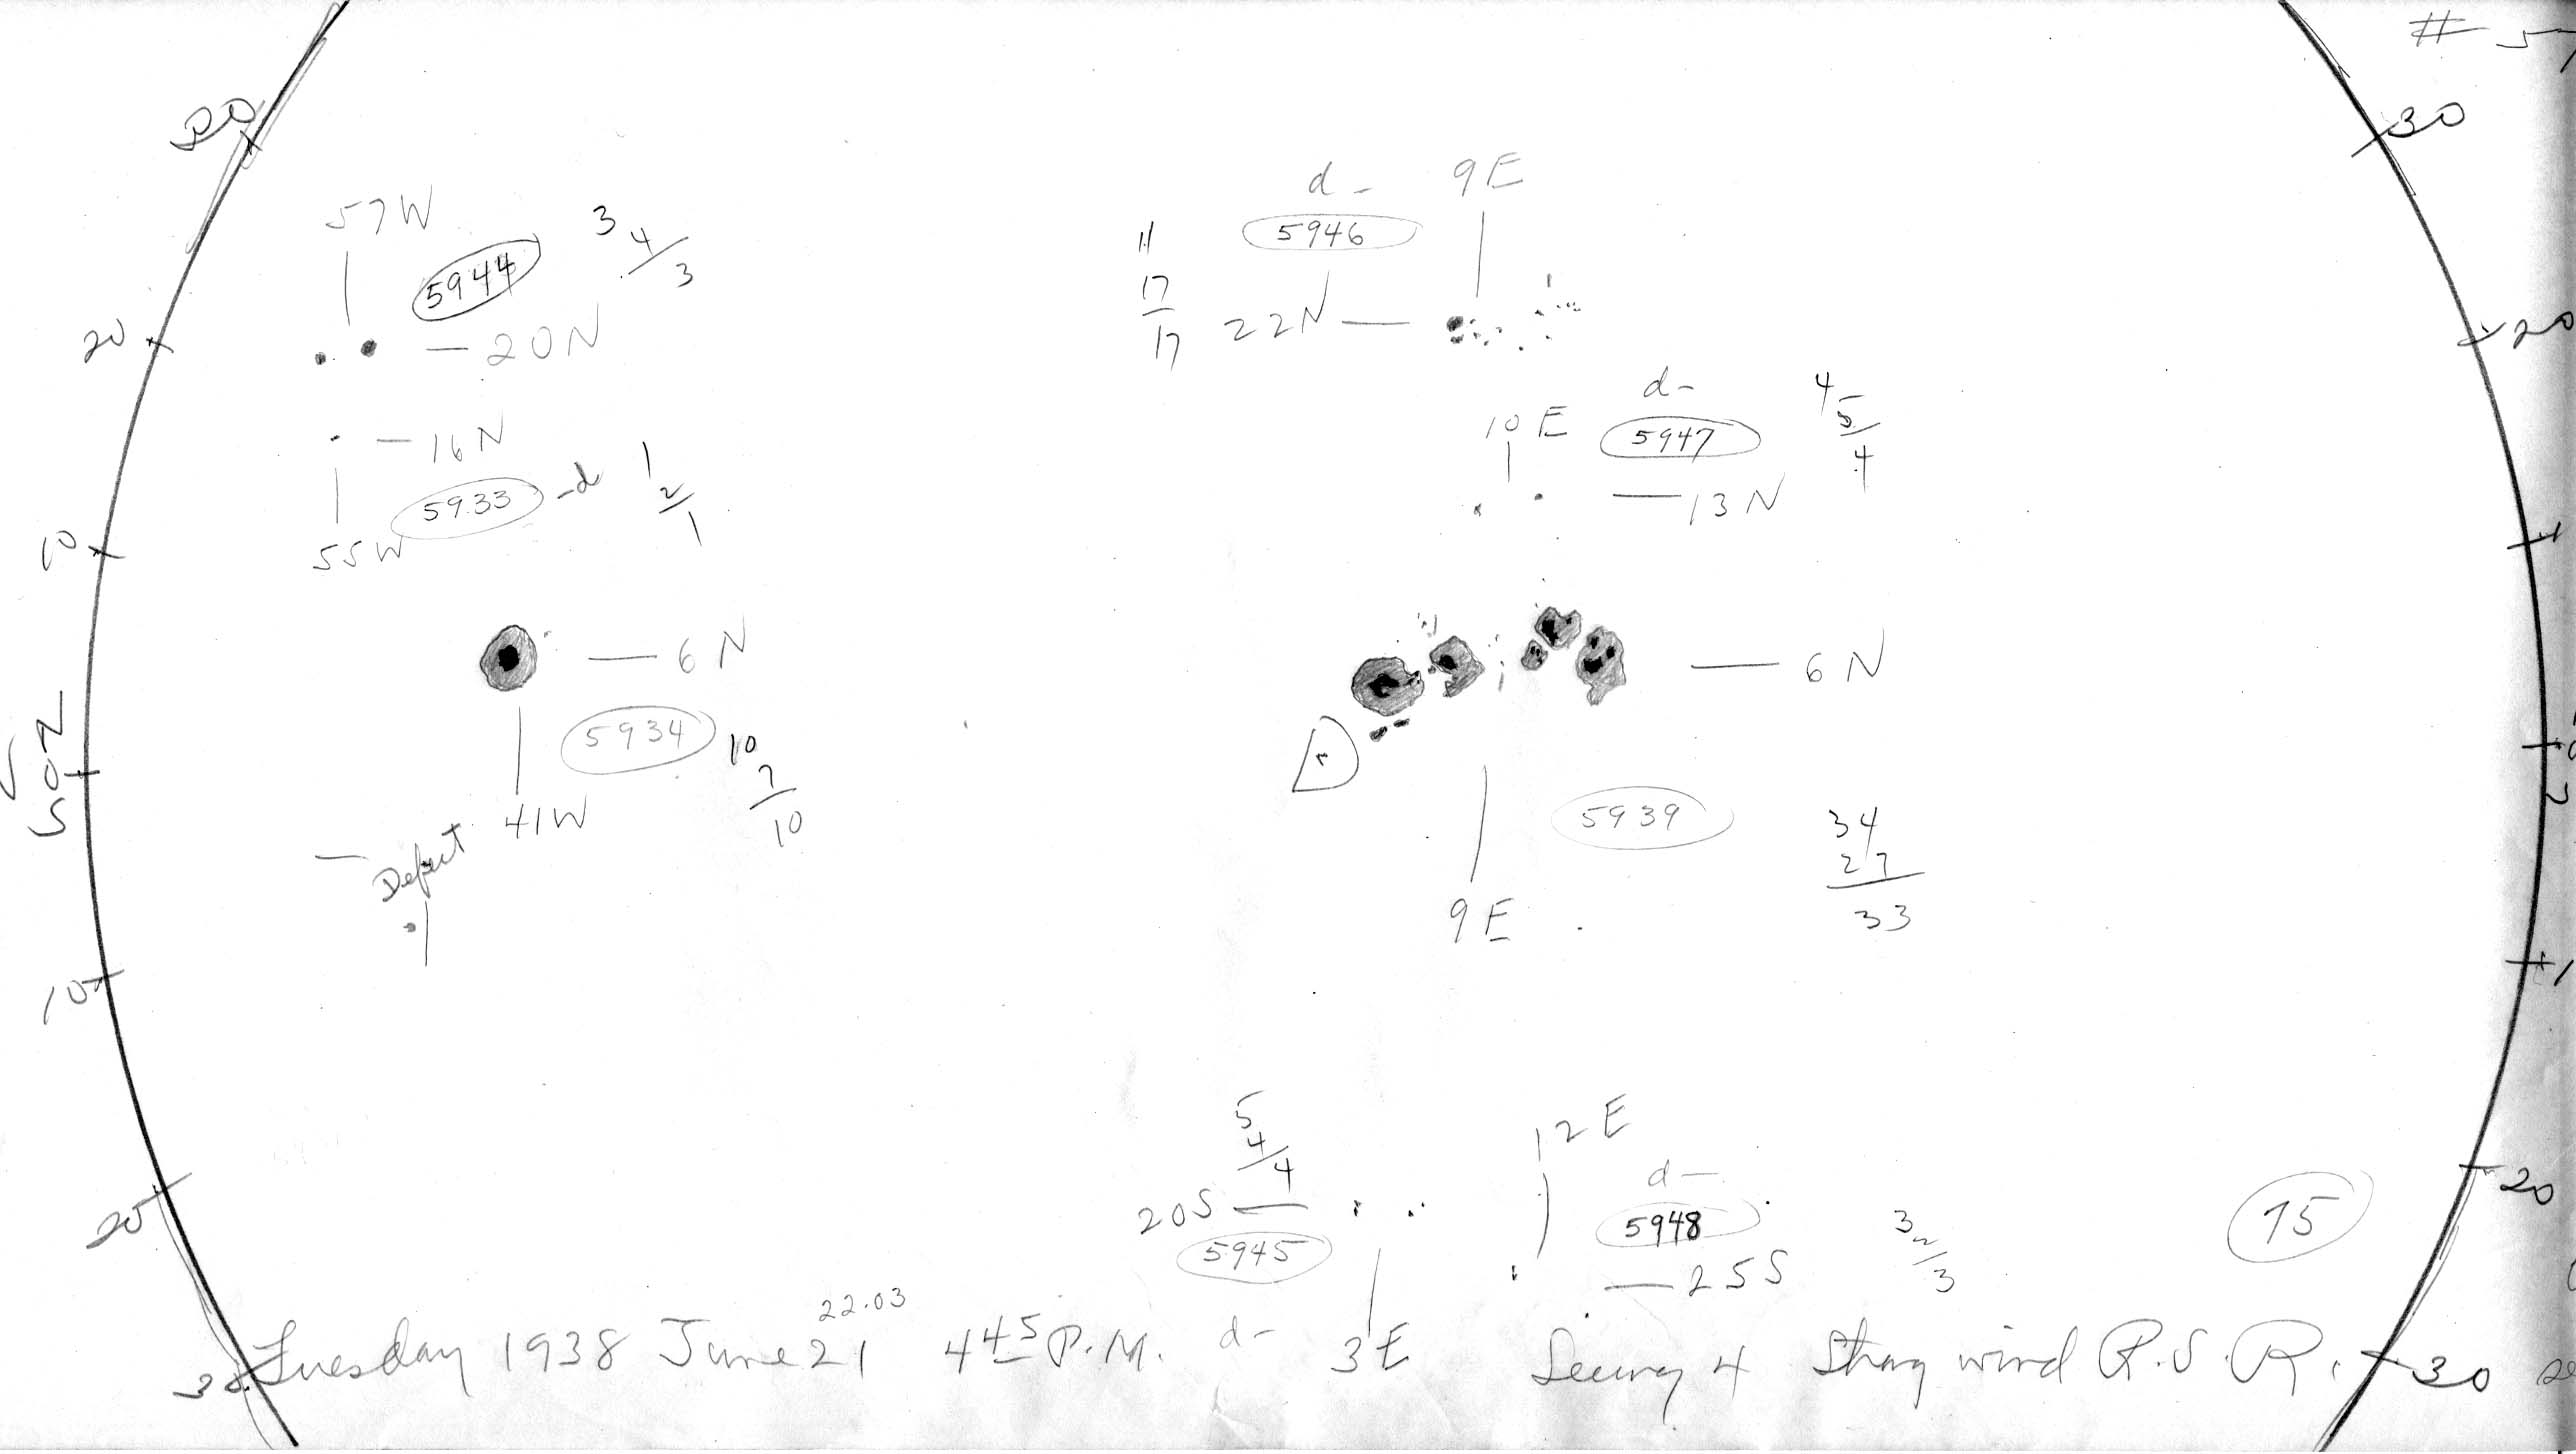 # 5
30
30
57W
5944
3
4/3
20N
20
d- 9E
5946
11
17
17
22N
20
16N
5933 -d
1
2/1
55W
10
d-
10 E
5947
4
5/4
13N
6 N
5934
10
7
10
41W
Defect
6 N
D
5939
9E
34
27
33
0
10
20
5
4/4
20S
5945
12 E
d-
5948
25S
3
2/3
15
20
22.03
Tuesday 1938 June 21 4 45 P.M. d- 3E Seeing 4 Strong wind R.S.R.
30
30